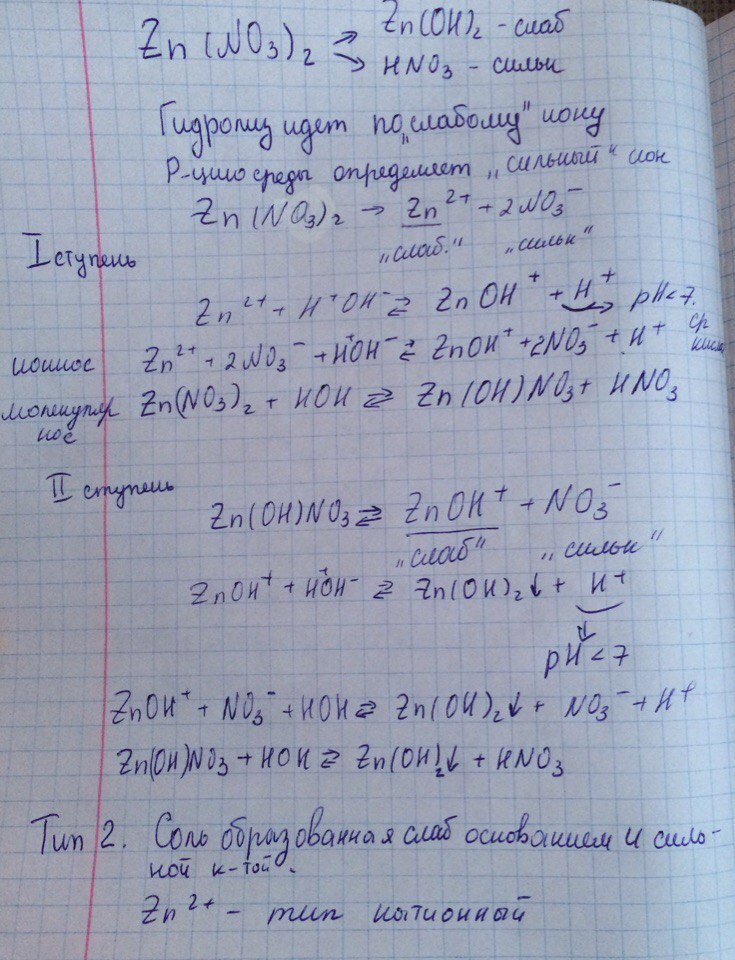 Zn(NO₃)₂ → Zn(OH)₂ - слаб
→ HNO₃ - сильн
Гидролиз идет по „слабому" иону
Р-цию среды определяет „сильный" ион
Zn(NO₃)₂ → Zn²⁺ + 2NO₃⁻
„слаб." „сильн"
I ступень
Zn²⁺ + H⁺OH⁻ ⇄ ZnOH⁺ + H⁺ → pH<7.
ионное Zn²⁺ + 2NO₃⁻ + H⁺OH⁻ ⇄ ZnOH⁺ + 2NO₃⁻ + H⁺ ср
Zn(NO₃)₂ + HOH ⇄ Zn(OH)NO₃ + HNO₃
молекуляр
ное
II ступень
Zn(OH)NO₃ ⇄ ZnOH⁺ + NO₃⁻
„слаб" „сильн"
ZnOH⁺ + H⁺OH⁻ ⇄ Zn(OH)₂↓ + H⁺
↓
pH<7
ZnOH⁺ + NO₃⁻ + HOH ⇄ Zn(OH)₂↓ + NO₃⁻ + H⁺
Zn(OH)NO₃ + HOH ⇄ Zn(OH)₂↓ + HNO₃
Тип 2. Соль образованная слаб основанием и силь-
ной к-той.
Zn²⁺ - тип катионный